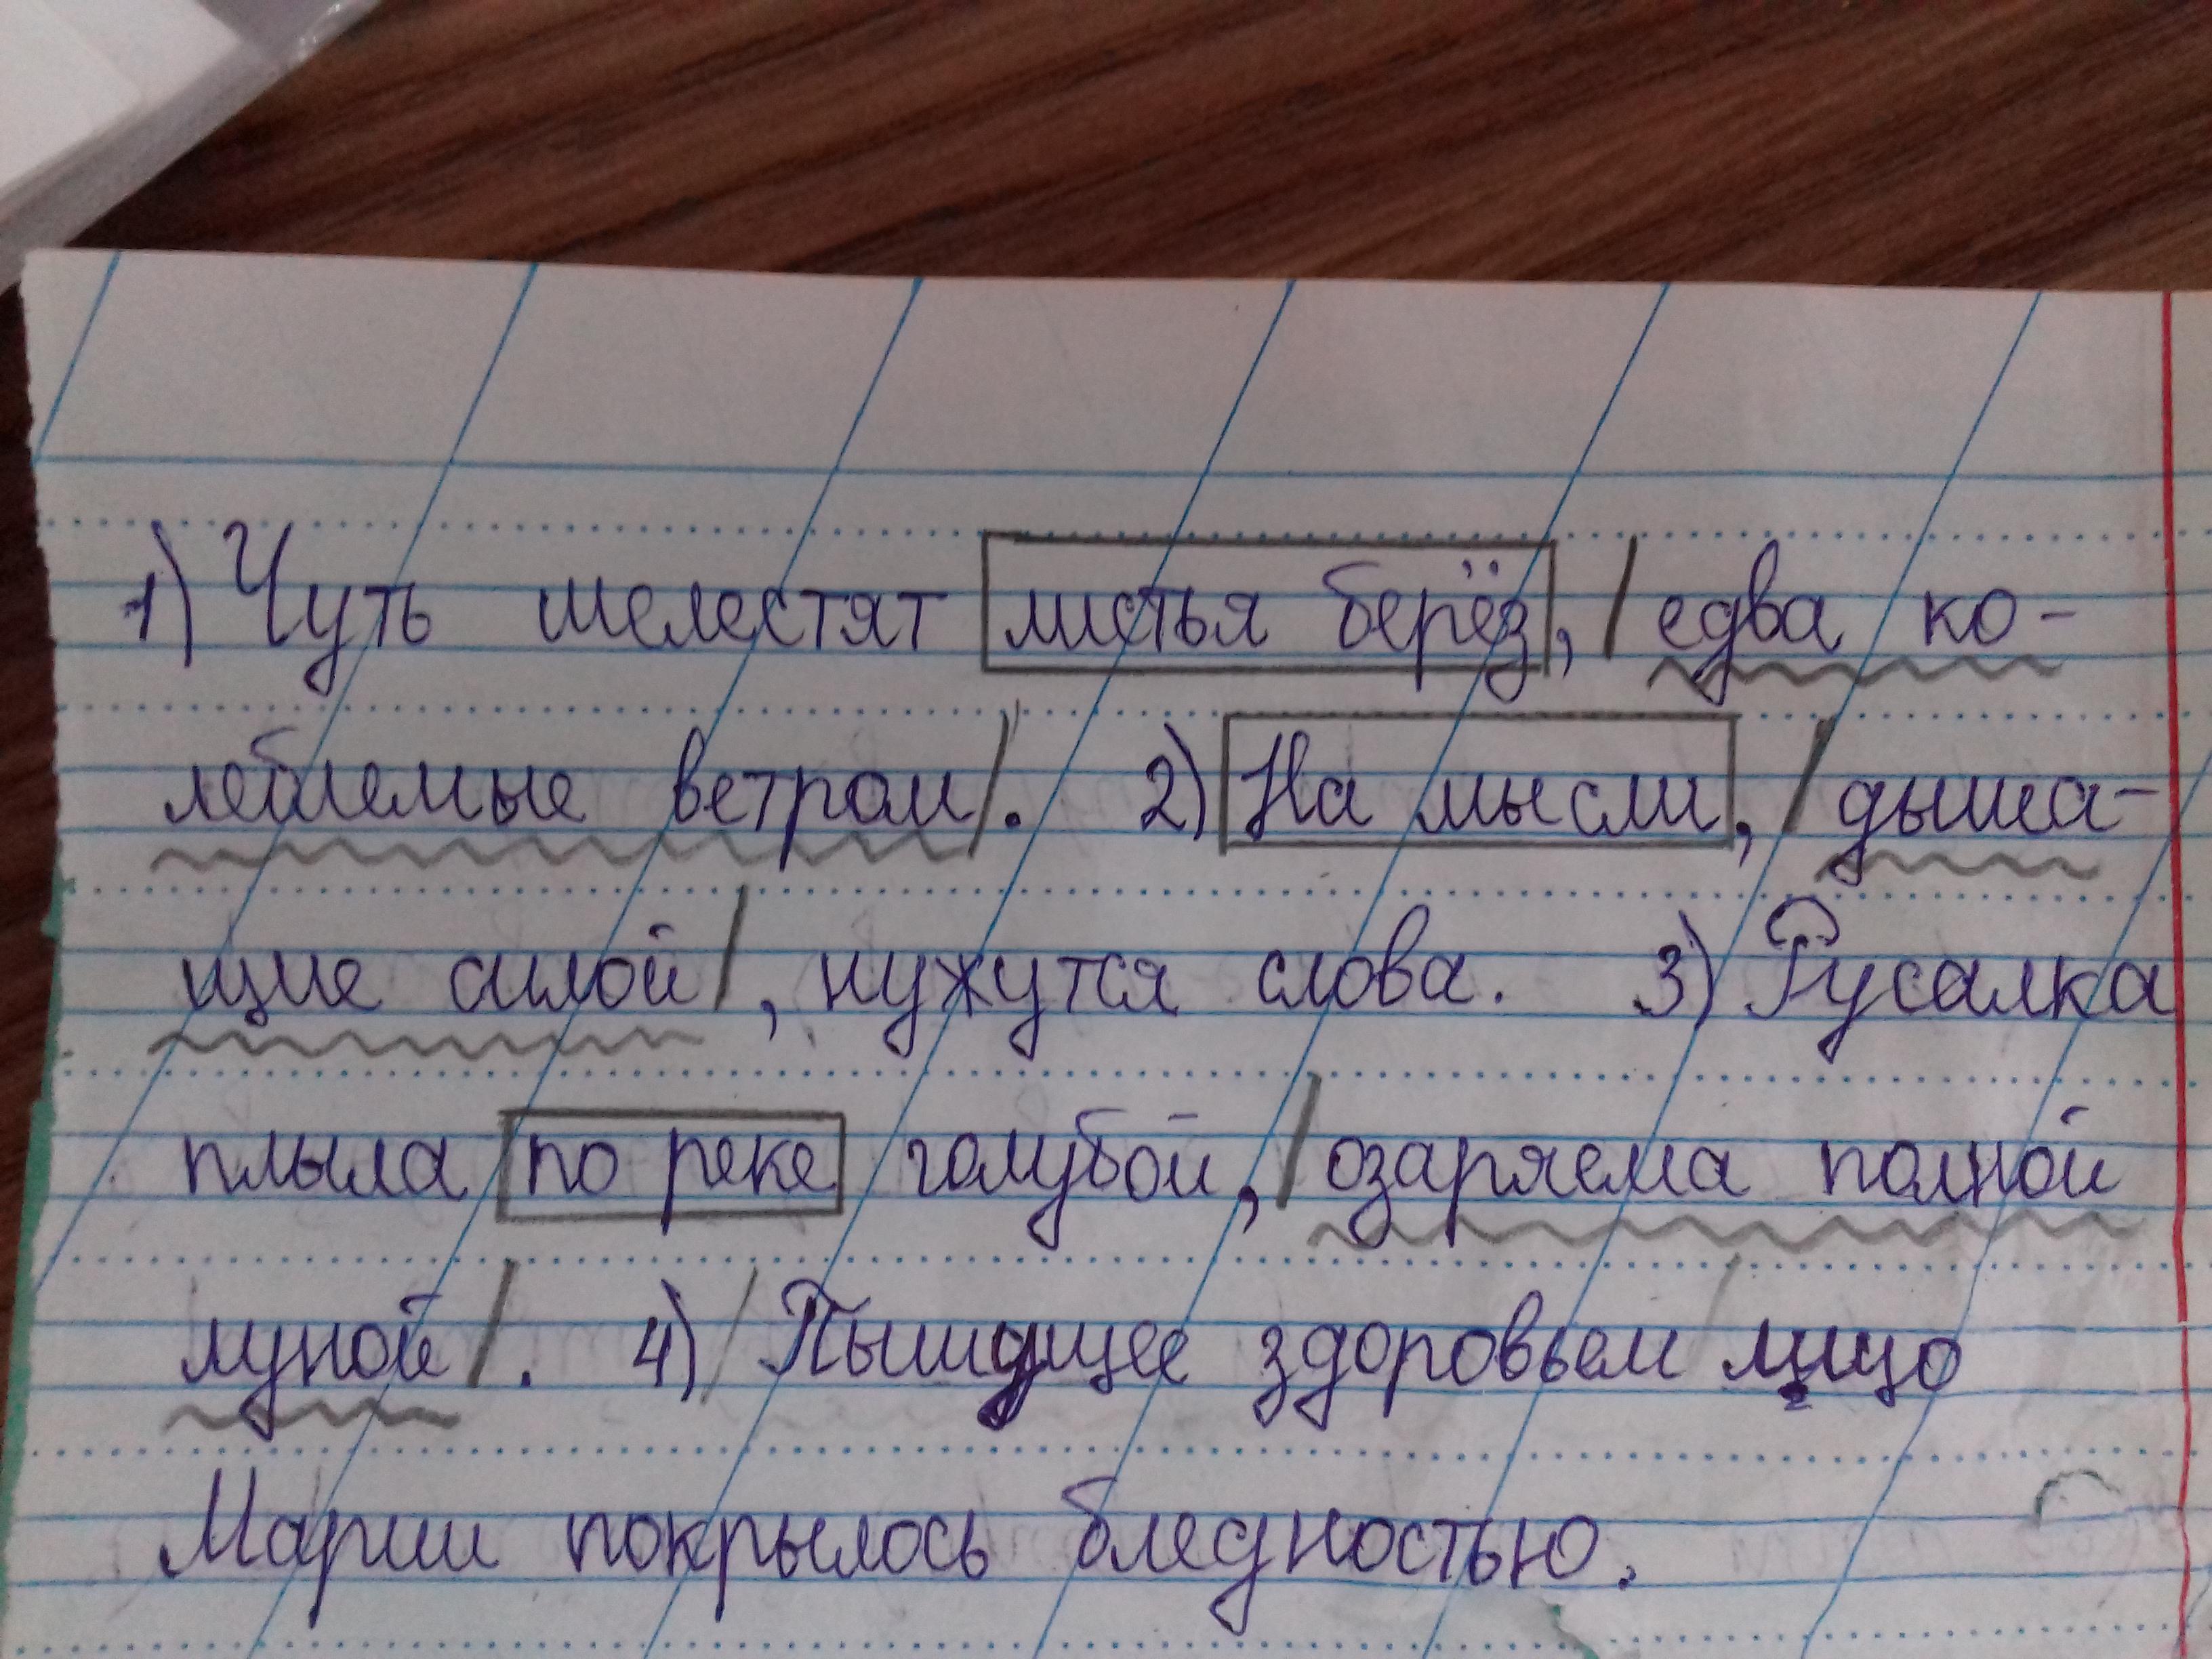 1) Чуть шелестят листья берёз, едва ко-
леблемые ветром. 2) На мысли, дыша-
щие силой, нужутся слова. 3) Русалка
плыла по реке голубой, озаряема полной
луной. 4) Пышущее здоровьем лицо
Марии покрылось бледностью.